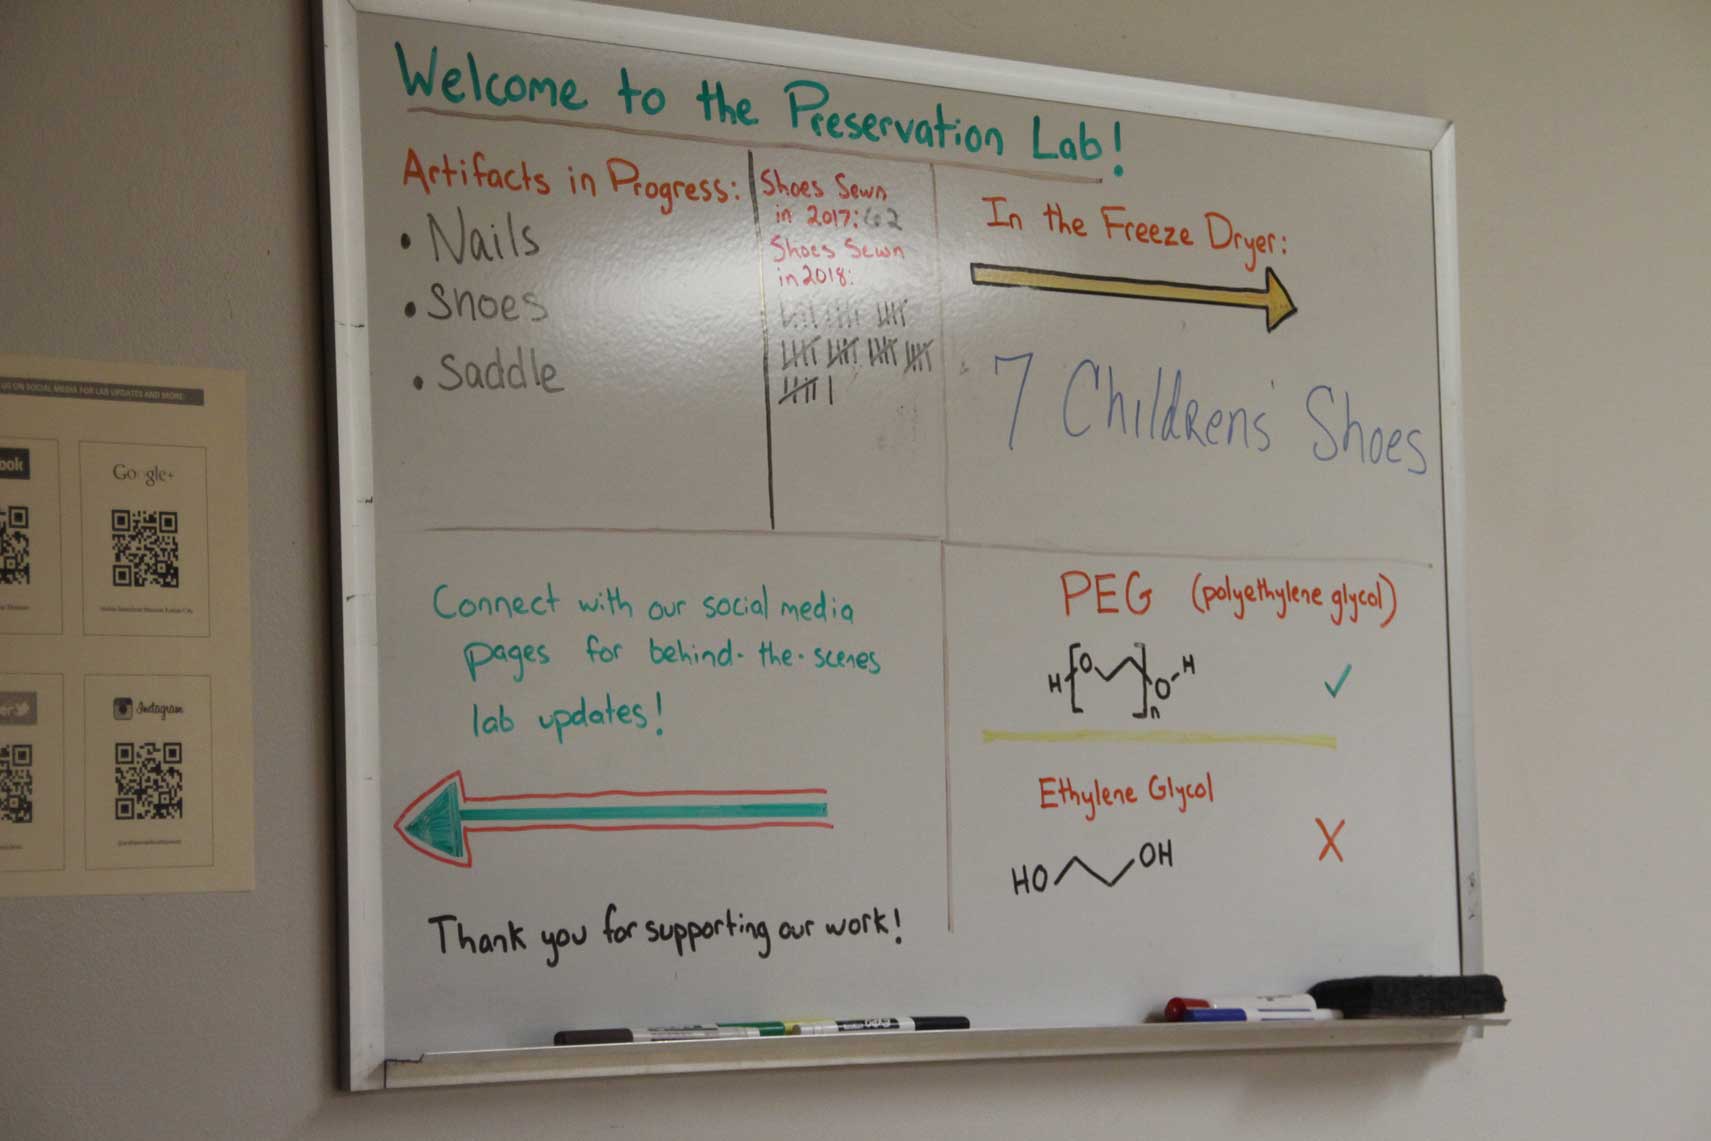 Welcome to the Preservation Lab!
Artifacts in Progress:
• Nails
• Shoes
• Saddle
Shoes Sewn
in 2017: 62
Shoes Sewn
in 2018:
In the Freeze Dryer:
7 Childrens' Shoes
Connect with our social media
pages for behind-the-scenes
lab updates!
Thank you for supporting our work!
PEG (polyethylene glycol)
H [O ]n O H
✓
Ethylene Glycol
HO OH
X
US ON SOCIAL MEDIA FOR LAB UPDATES AND MORE
ook
Google+
er
Instagram
EXPO